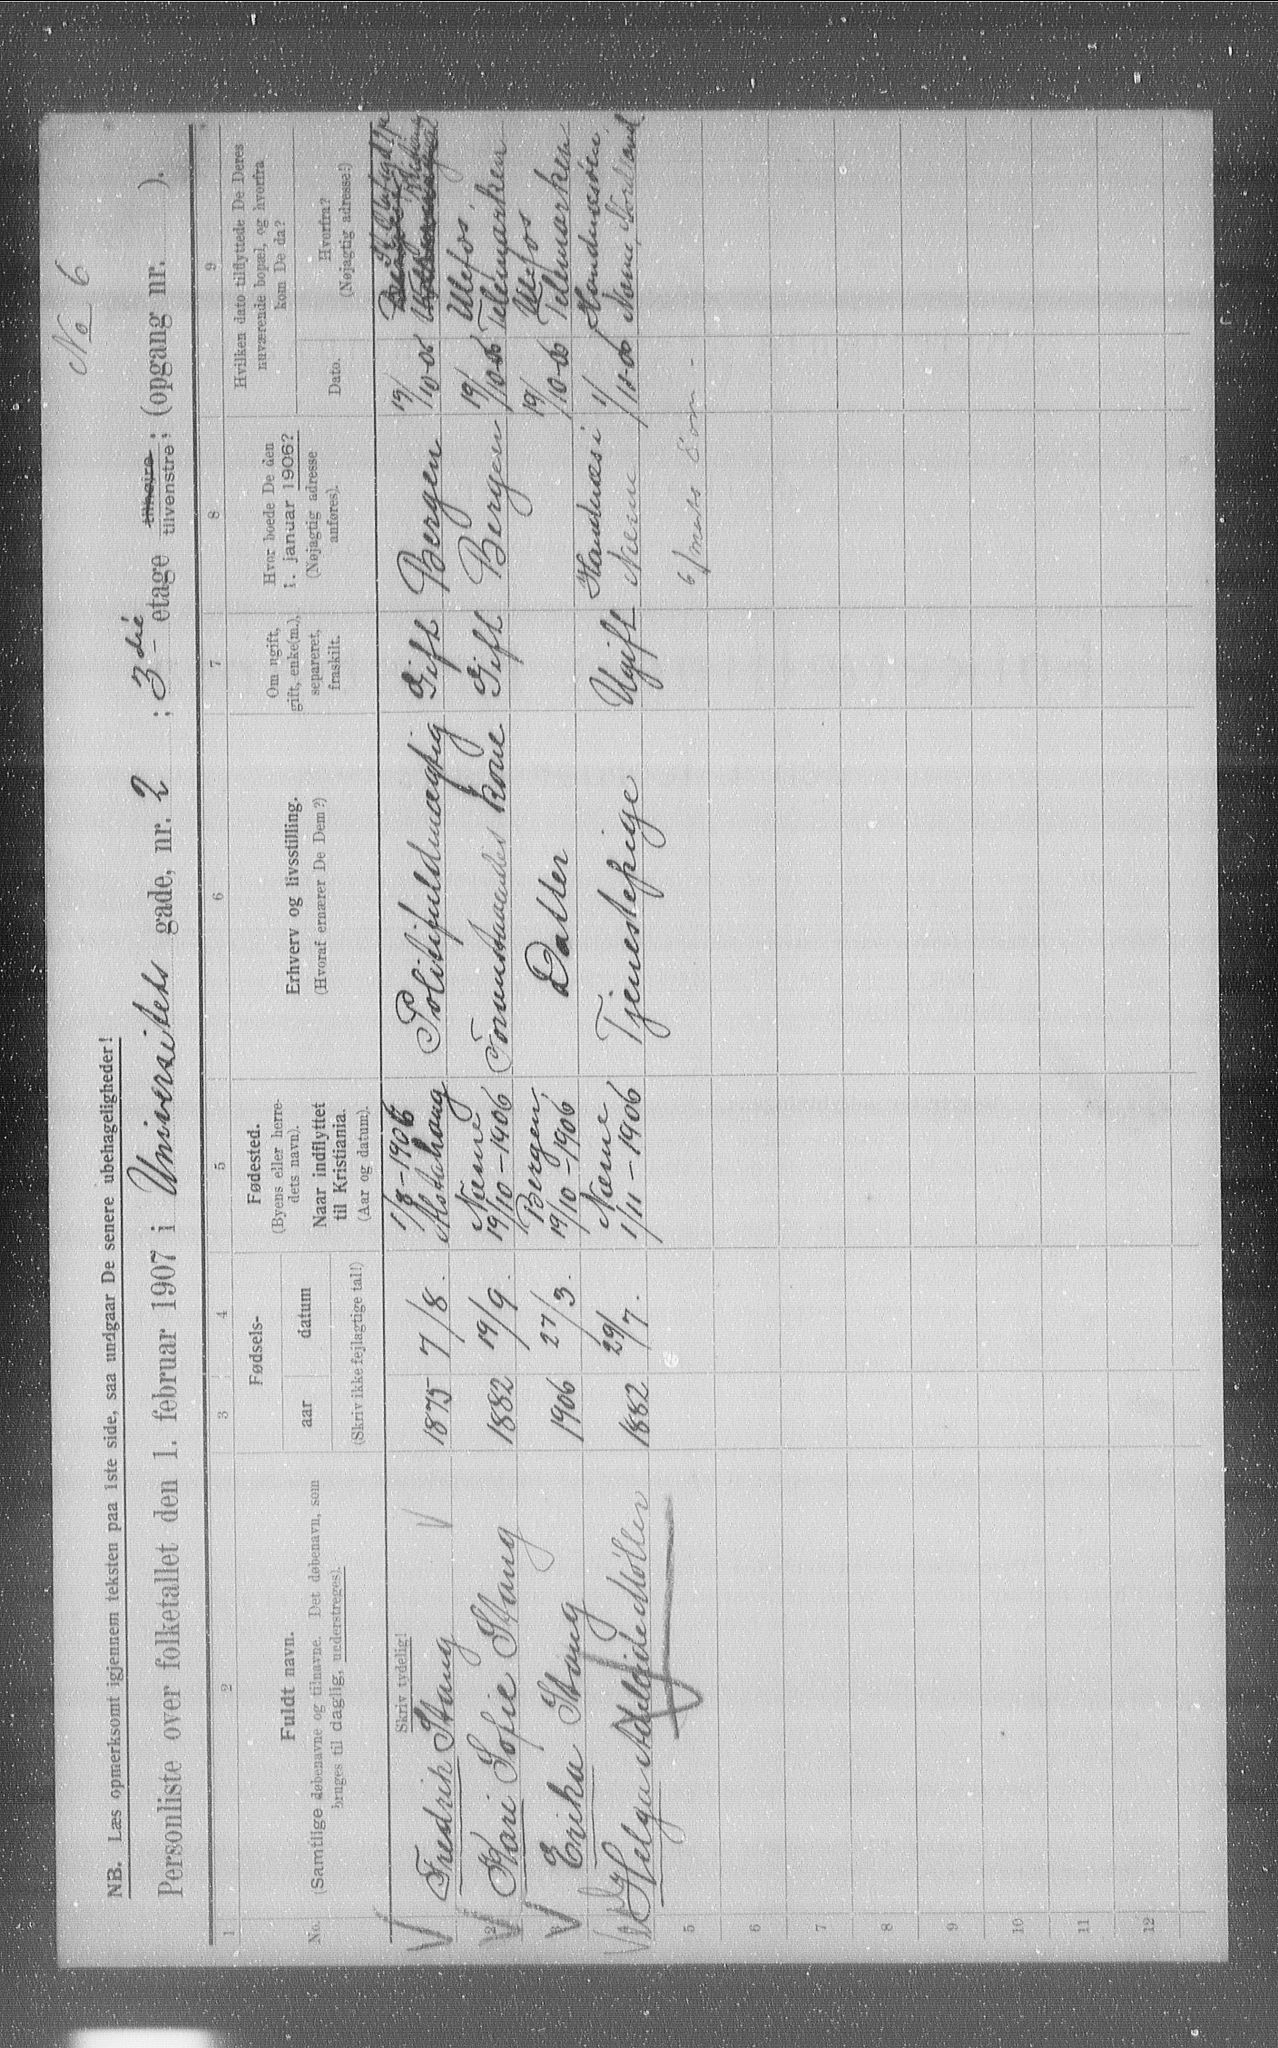 No 6
NB. Læs opmerksomt igjennem teksten paa 1ste side, saa undgaar De senere ubehageligheder!
Personliste over folketallet den 1. februar 1907 i Universitets gade, nr. 2 ; 3 dié etage tilhøire, tilvenstre, (opgang nr. ).
1 2 3 4 5 6 7 8 9
No.
Fuldt navn.
(Samtlige døbenavne og tilnavne. Det døbenavn, som
bruges til daglig, understreges).
Skriv tydelig!
Fødsels-
aar datum
(Skriv ikke feilagtige tal!)
Fødested.
(Byens eller herre-
dets navn).
Naar indflyttet
til Kristiania.
(Aar og datum).
Erhverv og livsstilling.
(Hvoraf ernærer De Dem?)
Om ugift,
gift, enke(m.),
separeret,
fraskilt.
Hvor boede De den
1. januar 1906?
(Nøjagtig adresse
anføres).
Hvilken dato tilflyttede De Deres
nuværende bopæl, og hvorfra
kom De da?
Dato.
Hvorfra?
(Nøjagtig adresse!)
Fredrik Stang 1875 7/8. 1/8-1906 Alstahoug Politifuldmægtig Gift Bergen 19/10-06
2 Kari Sofie Stang 1882 19/9. Næmne 19/10-1906 Foranstaaendes kone Gift Bergen 19/10-06 Ulefos, Telemarken
3 Erika Stang 1906 27/3. Bergen, 19/10-1906 Datter 19/10-06 Ulefos Telemarken
Helga Adelaide Møller 1882 29/7. Næmne 1/11-1906 Tjenestepige Ugift Handnæs i Næmne 1/11-06 Handnæsøen, Næmne, Nordland.
5
6
7
8
9
10
11
12